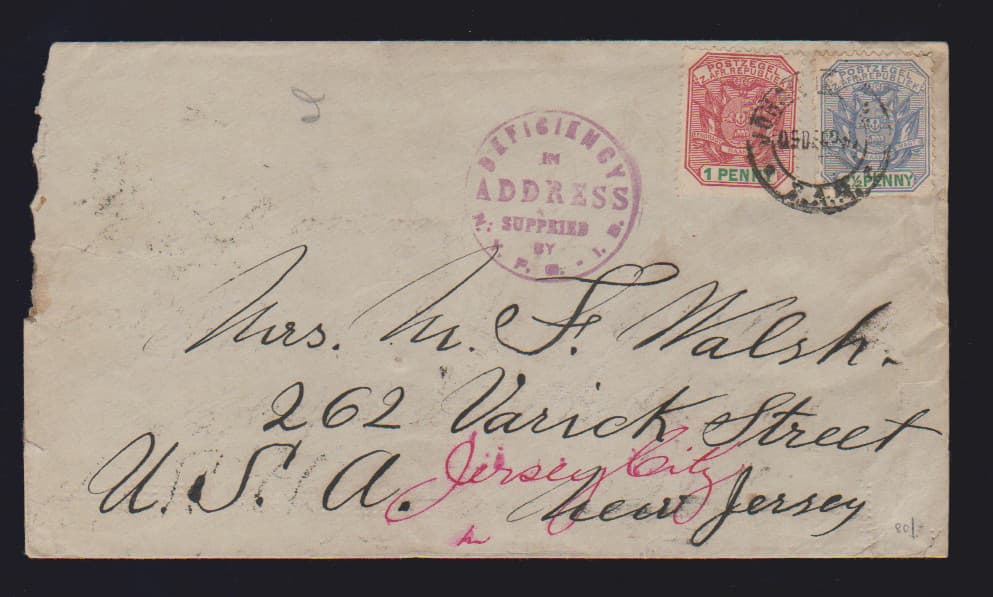 POSTZEGEL
Z. AFR. REPUBLIEK
1 PENNY
POSTZEGEL
Z. AFR. REPUBLIEK
½ PENNY
Z.A.R.
DEFICIENCY
IN
ADDRESS
SUPPKIED
BY
N. Y. P. O. - I. D.
Mrs. M. F. Walsh.
262 Varick Street
Jersey City
U. S. A. New Jersey
80/-